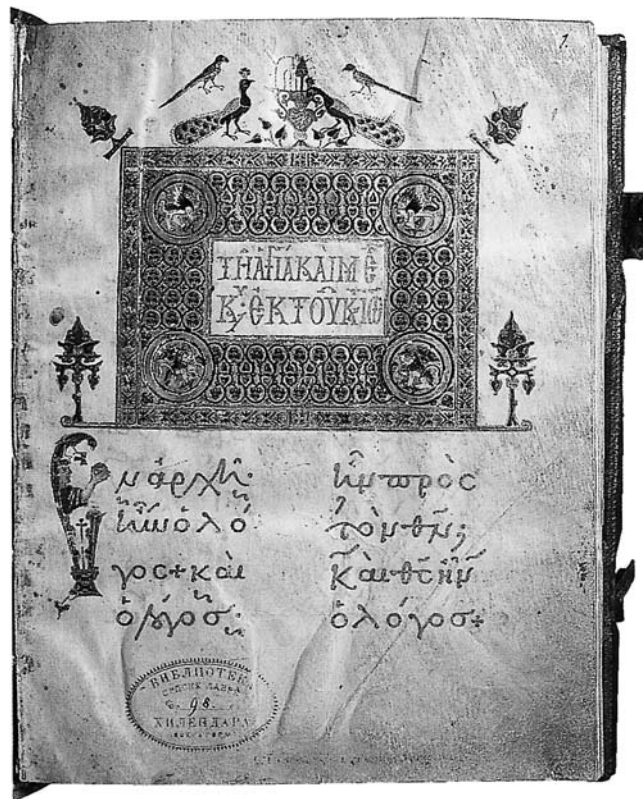 1.
ΤΗ ΑΓΙΑ ΚΑΙ Μ Ε
Κ,Υ ΕΚ ΤΟΥ Κ ΙΩ
Ν ἀρχῆ·
ἦν ὁ λό
γος + καὶ
ὁ λόγος
ἦν πρὸς
τὸν θν;
καὶ θς ἦν
ὁ λόγος +
БИБЛИОТЕК
СРПСКЕ ЛАВРЕ
98.
ХИЛЕНДАРА